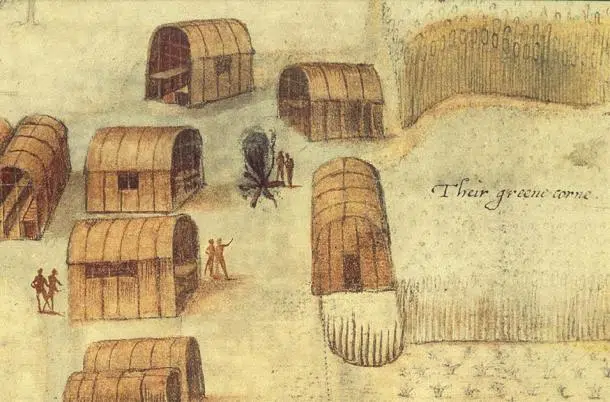 Their greene corne.